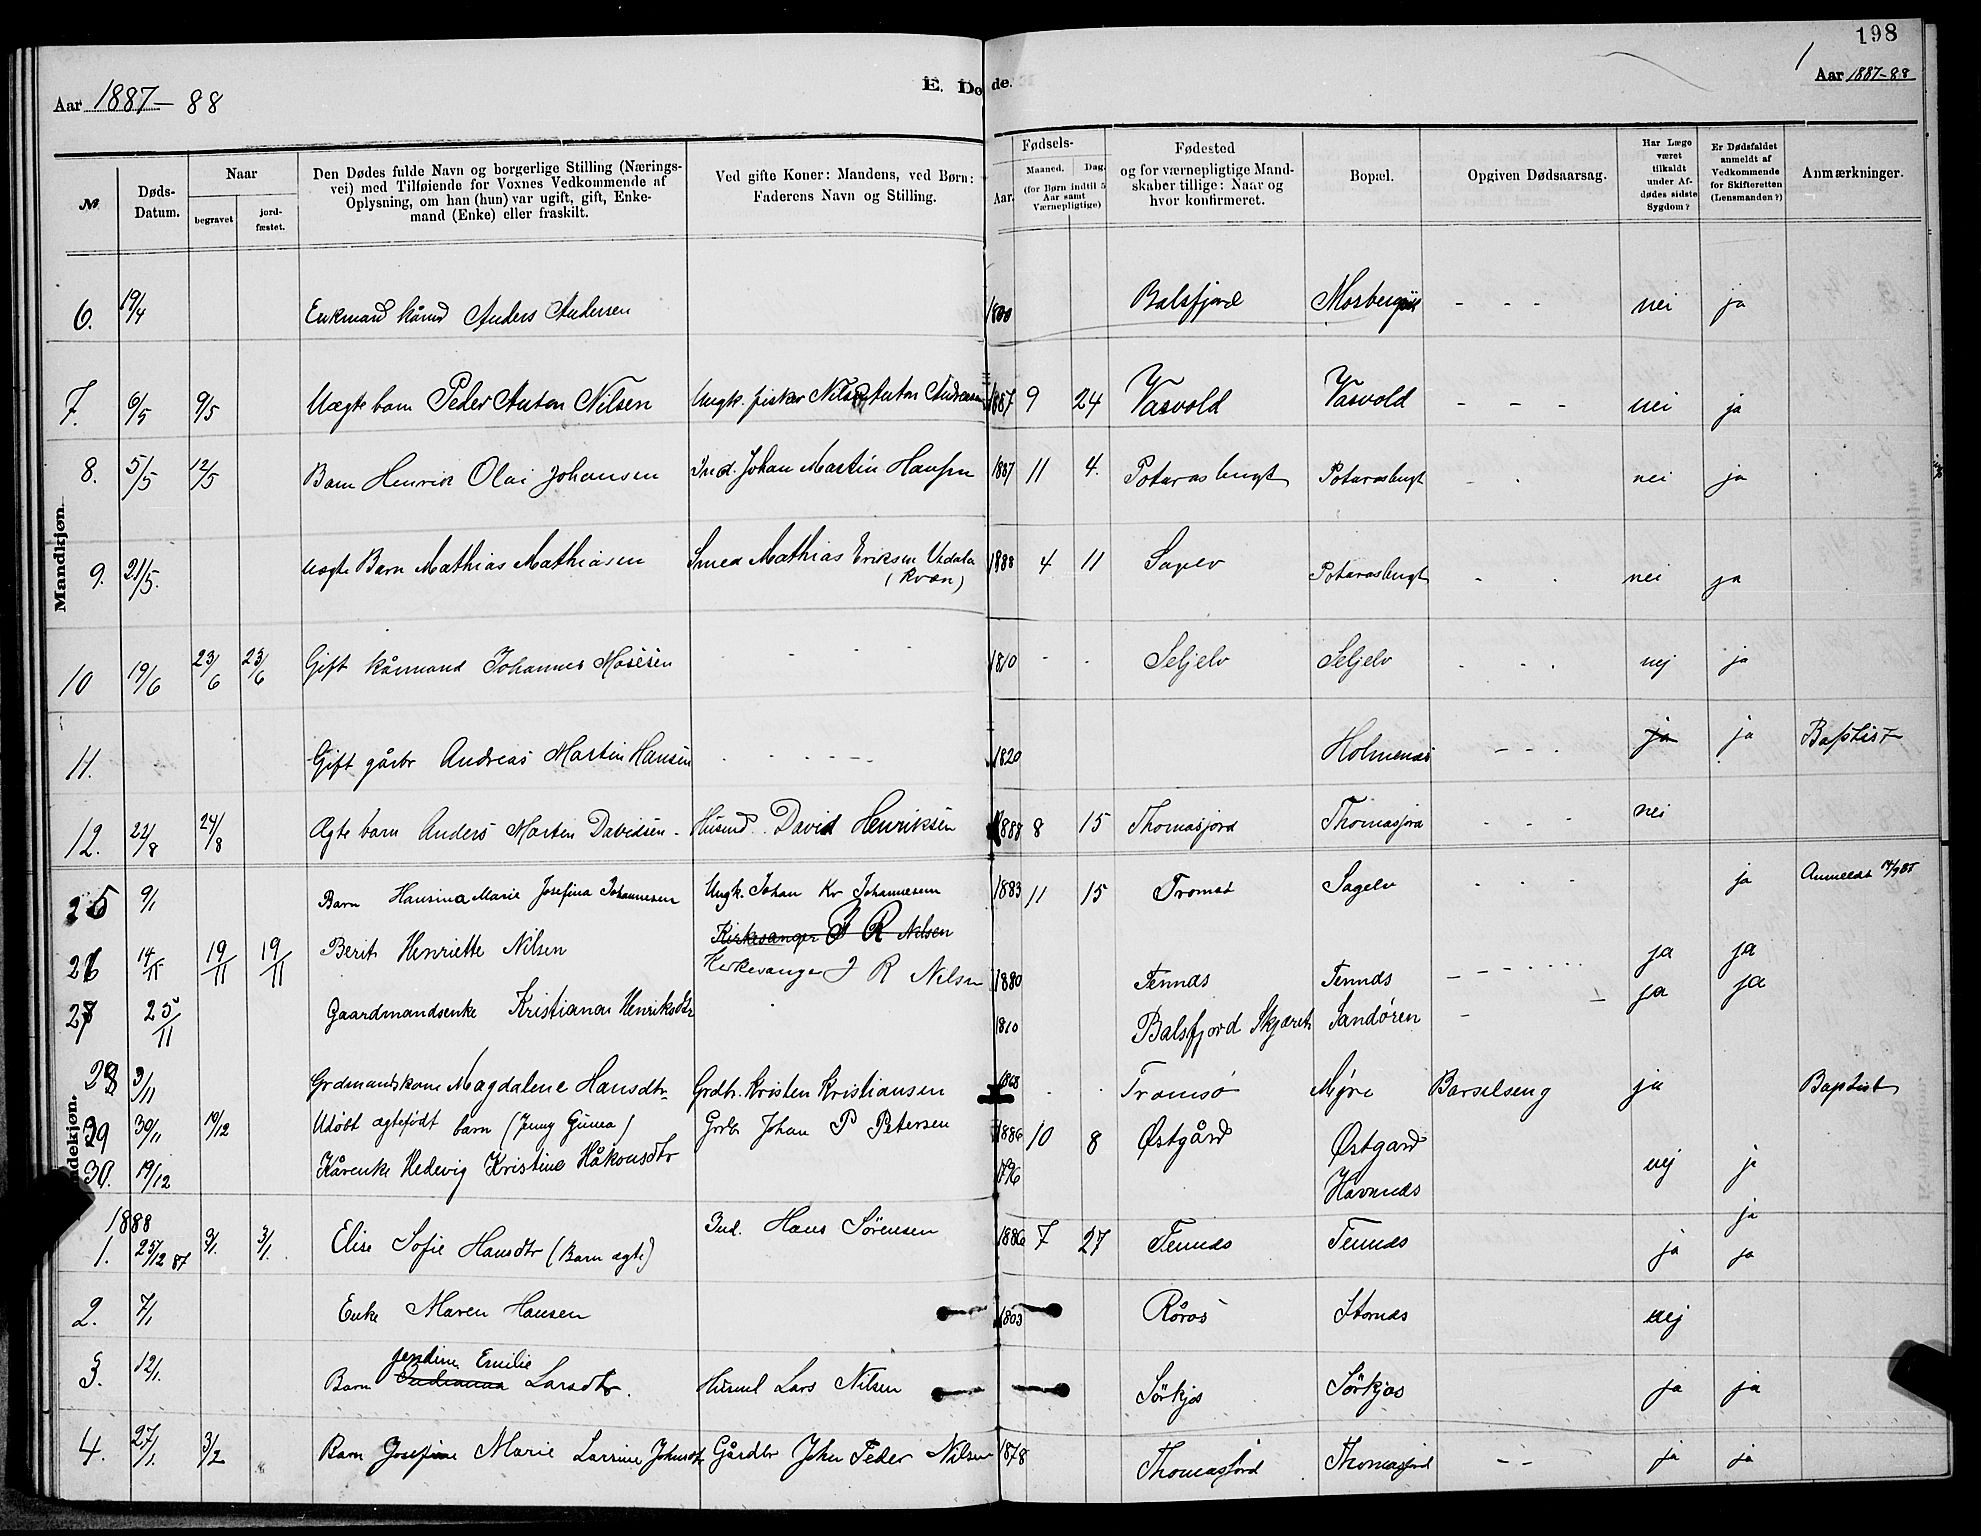 198
Aar 1887-88
E. Dø de.
Aar 1887-88
№
Døds-Datum.
Naar
begravet
jord-fæstet.
Den Dødes fulde Navn og borgerlige Stilling (Nærings-
vei) med Tilføiende for Voxnes Vedkommende af
Oplysning, om han (hun) var ugift, gift, Enke-
mand (Enke) eller fraskilt.
Ved gifte Koner: Mandens, ved Børn:
Faderens Navn og Stilling.
Fødsels-
Aar.
Maaned.
Dag.
(for Børn indtil 5
Aar samt
Værnepligtige)
Fødested
og for værnepligtige Mand-
skaber tillige: Naar og
hvor konfirmeret.
Bopæl.
Opgiven Dødsaarsag.
Har Læge
været
tilkaldt
under Af-
dødes sidste
Sygdom?
Er Dødsfaldet
anmeldt af
Vedkommende
for Skifteretten
(Lensmanden?)
Anmærkninger.
Mandkjøn.
6. 19/4 Enkmand kårmd Anders Andersen Balsfjord - - - nei ja
7. 6/5 9/5 Uægte barn Peder Anton Nilsen Ungk. fisker Nils Anton Andreasen 1887 9 24 Vasvold Vasvold - - - nei ja
8. 5/5 12/5 Barn Henrik Olai Johansen Ind. Johan Martin Hansen 1887 11 4. Potarasbugt Potarasbugt - - nei ja
9. 21/5. uægte Barn Mathias Mathiasen Smed Mathias Eriksen 1888 4 11 Sagelv Potarasbugt - - nei ja
(kvæn)
10 19/6 23/6 23/6 Gift kårmand Johannes Mosesen - - - 1810 - - Seljelv Seljelv - - - nej ja
11. Gift gårbr Andreas Martin Hansen - - - - 1820 Holmenæs - - - ja ja Baptist
12. 22/8 24/8 Ægte barn Anders Morten Davidsen - Husmd. David Henriksen 1888 8 15 Thomasjord Thomasjord - - - nei
25 9/1 Barn Hansina Marie Josefina Johannesen Ungk. Johan Kr Johannesen 1883 11 15 Tromsø Sagelv - - - ja Anmeldt
Kirkesanger J R Nilsen
26 14/11 19/11 19/11 Berit Henriette Nilsen Kirkesanger J R Nilsen 1880 Tennæs Tennæs - - - - ja ja
27 25/11 Gaardmandsenke Kristiana Henriksdtr 1810 Balsfjord Skjæret Sandøren - - ja ja
28 3/11 Grdmandskone Magdalene Hansdtr Grdbr. Kristen Kristiansen Tromsø Myre Barselseng ja Baptist
29 30/11 10/12 Udøbt ægtefødt barn (Jenny Gunea) Grdbr Johan P Petersen 1886 10 8 Østgård Østgard
30. 19/12 Kårenke Hedevig Kristine Håkonsdtr 1796 Havnnæs nej ja
1888
1. 25/12 87 3/1. 3/1. Elise Sofie Hansdtr (Barn ægte) Ind. Hans Sørensen 1886 7 27 Tennæs Tennæs ja ja
2. 7/1 Enke Maren Hansen 1803 Røros Stornæs nej
Jendine Emilie
3. 12/1. Barn Larsdtr. Husmd Lars Nilsen Sørkjos Sørkjos ja ja
4. 27/1. 3/2 Barn Josefine Marie Larsine Johnsdtr Gårdbr John Peder Nilsen 1878 Thomasjord Thomasjord - - ja ja